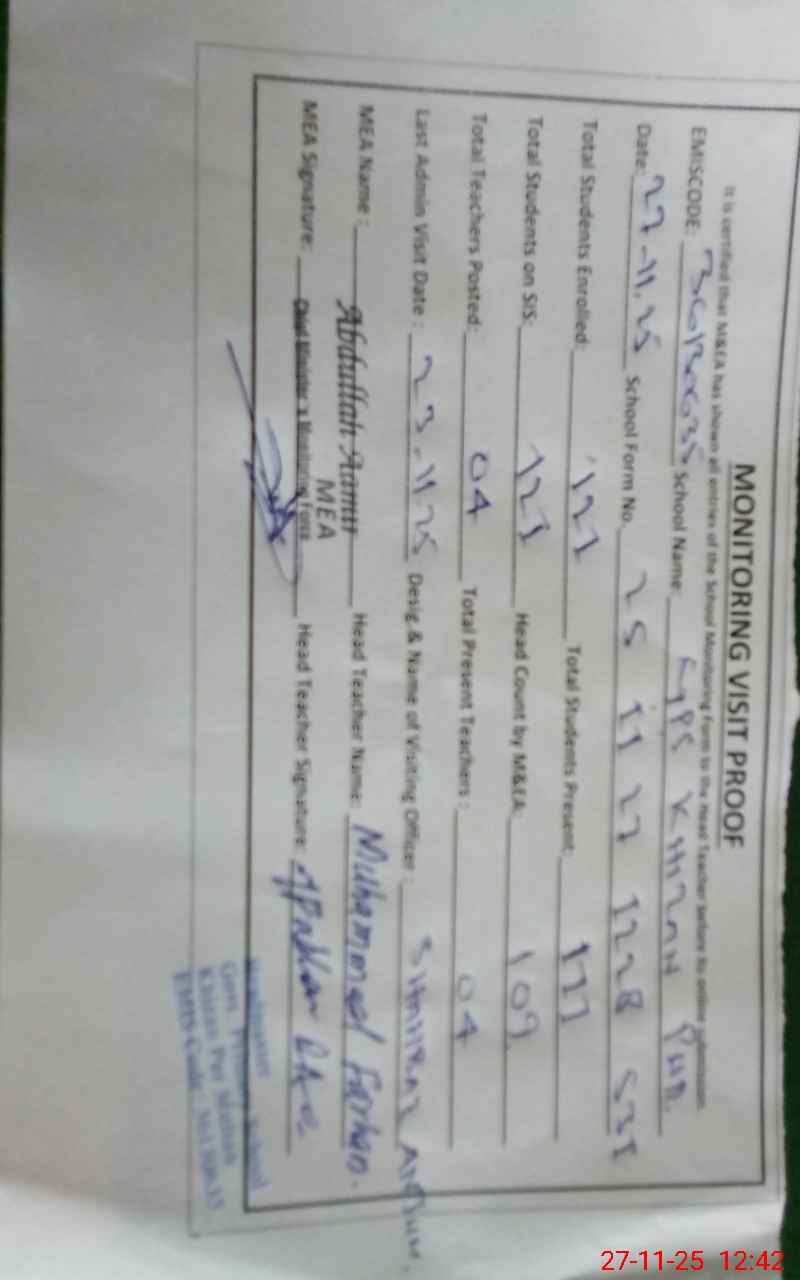 MONITORING VISIT PROOF
It is certified that M&EA has shown all entries of the School Monitoring Form to the Head Teacher before to online submission
EMISCODE: School Name:
Date: 27-11.25 School Form No. 25 11 27 1228 531
Total Students Enrolled: 121 Total Students Present:
Total Students on SIS: 121 Head Count by M&EA: 109
Total Teachers Posted: 04 Total Present Teachers : 04
Last Admin Visit Date : 23.11.25 Desig & Name of Visiting Officer :
MEA Name : Abdullah Aamir Head Teacher Name: Muhammad Farhan.
MEA
Chief Minister's Monitoring Force
MEA Signature: Head Teacher Signature:
Headmaster
Govt. Primary School
EMIS Code:
27-11-25 12:42